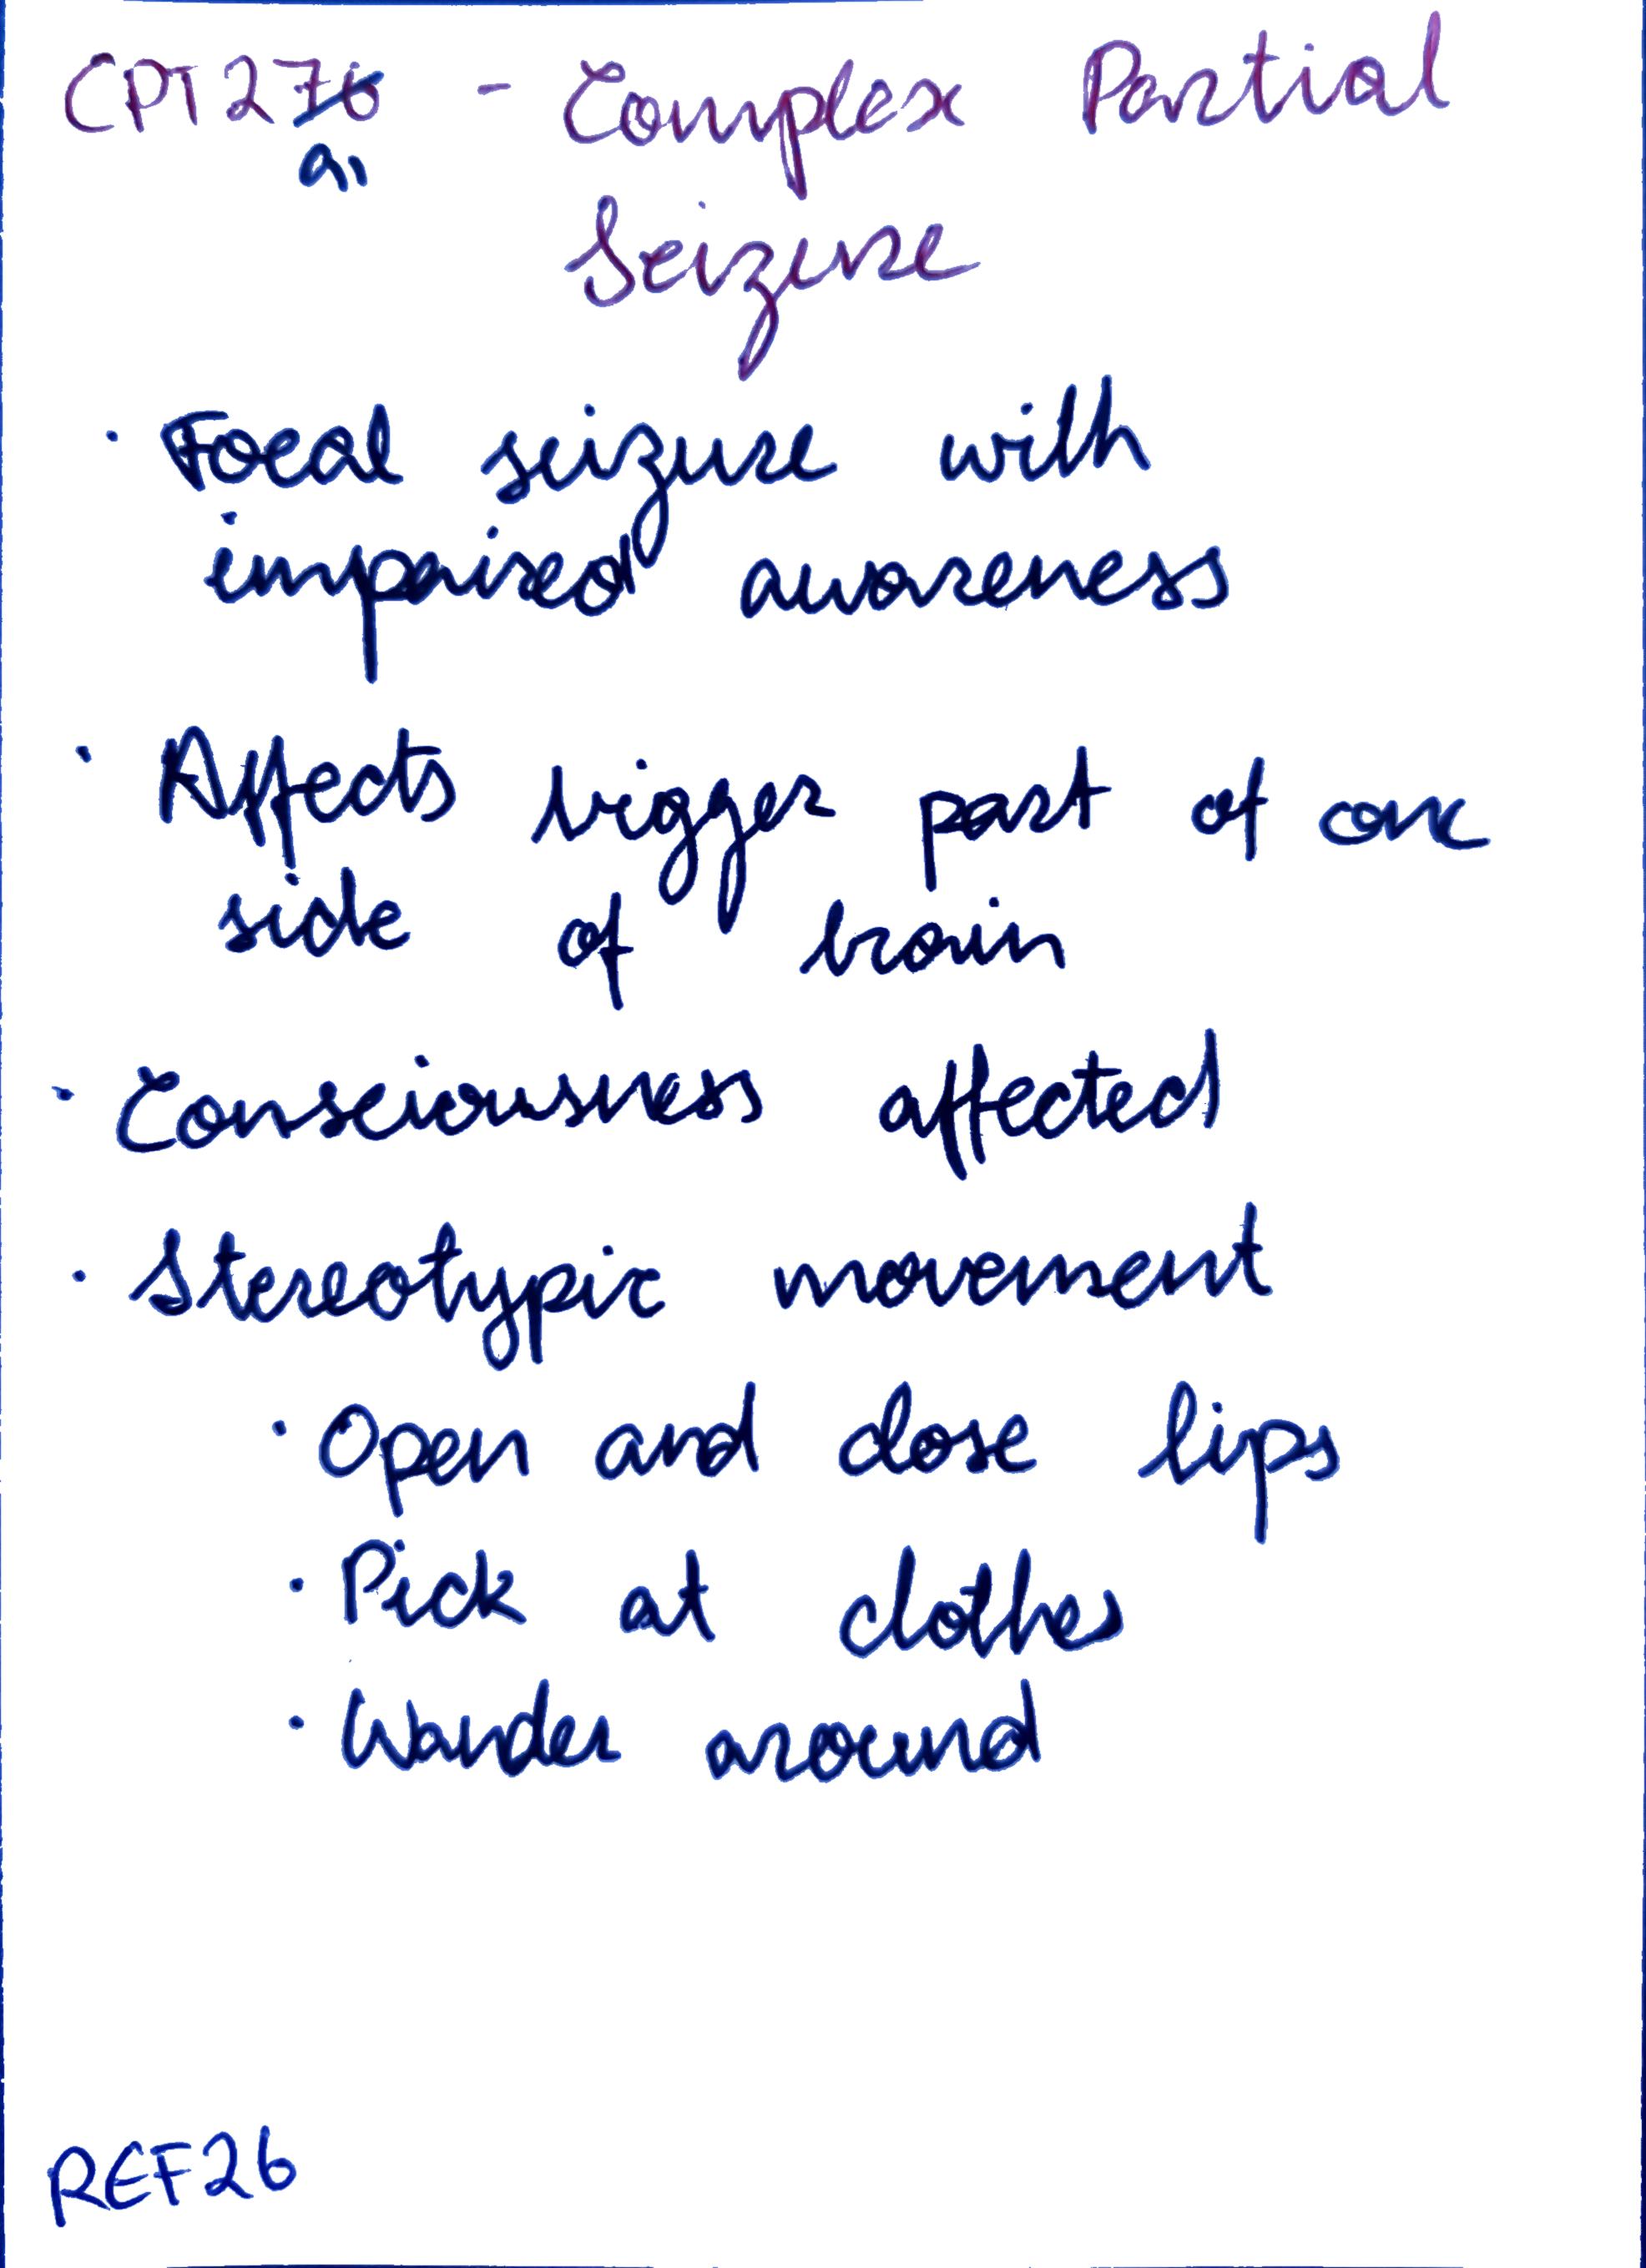 CPT276 - Complex Partial
91
Seizure
· Focal seizure with
impaired awareness
· Affects bigger part of one
side of brain
· Consciousness affected
· Stereotypic movement
· Open and close lips
· Pick at clothes
· Wander around
REF26